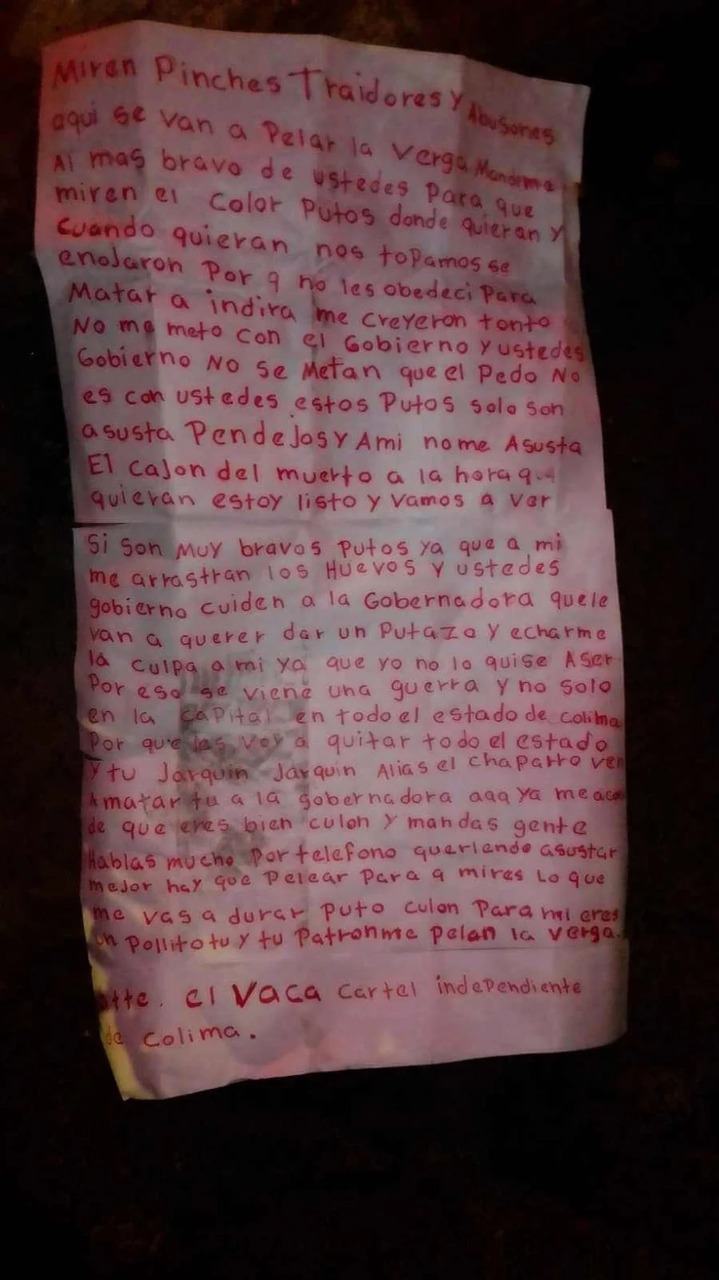 Miren Pinches Traidores y Abusones
aqui se van a Pelar la Verga Mandeme
Al mas bravo de ustedes Para que
miren el Color Putos donde quieran y
Cuando quieran nos topamos se
enojaron Por q no les obedeci Para
Matar a indira me creyeron tonto
No me meto con el Gobierno y ustedes
Gobierno No se Metan que el Pedo No
es con ustedes estos Putos solo son
asusta Pendejos y Ami nome Asusta
El cajon del muerto a la hora q
quieran estoy listo y vamos a ver
Si son Muy bravos Putos ya que a mi
me arrastran los Huevos y ustedes
gobierno cuiden a la Gobernadora quele
van a querer dar un Putazo y echarme
la culpa a mi ya que yo no lo quise Aser
Por eso se viene una guerra y no solo
en la capital en todo el estado de colima
Por que les voy a quitar todo el estado
y tu Jarquin Jarquin Alias el chaparro ven
Amatar tu a la gobernadora aqq ya me
de que eres bien culon y mandas gente
Hablas mucho Por telefono queriendo asustar
mejor hay que Pelear Para q mires Lo que
me vas a durar Puto culon Para mi eres
un Pollito tu y tu Patronme pelan la verga.
atte. el Vaca cartel independiente
de colima.